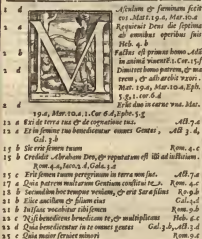 1 d Masculum & fœminam fecit eos. Matt.19.a, Mar.10.a
2 a Requievit Deus die septima ab omnibus operibus suis Heb. 4. b
2 b Factus est primus homo Adā in animā viventē. 1.Cor.15.f
2 d Dimittet homo patrem, & matrem, & adhærebit vxori. Mat. 19.a, Mar.10.a, Eph. 5.g, 1.cor 6.d
2 d Erūt duo in carne vna. Mat. 19.a, Mar.10.a, 1.Cor 6.d, Ephe.5.g
12 a Exi de terra tua & de cognatione tua. Act.7.a
12 a Et in semine tuo benedicentur omnes Gentes, Act. 3. d, Gal. 3.b
15 b Sic erit semen tuum Rom. 4.c
15 b Credidit Abraham Deo, & reputatum est illi ad iustitiam. Rom.4.a, Iaco.2.d, Gala.3.a
15 c Erit semen tuum peregrinum in terra non sua. Act.7.a
17 a Quia patrem multarum Gentium constitui te. Rom. 4.c
18 b Secundūm hoc tempus veniam, & erit Saræ filius Rom.9.b
21 b Eiice ancillam & filium eius Gal.4.d
21 b In Isaac vocabitur tibi semen Rom. 9.b
22 d Nisi benedicens benedicam te, & multiplicans Heb. 6.c
22 d Quia benedicentur in te omnes gentes Gal.3.b, Act.3.d
25 c Quia maior serviet minori Rom.9.c